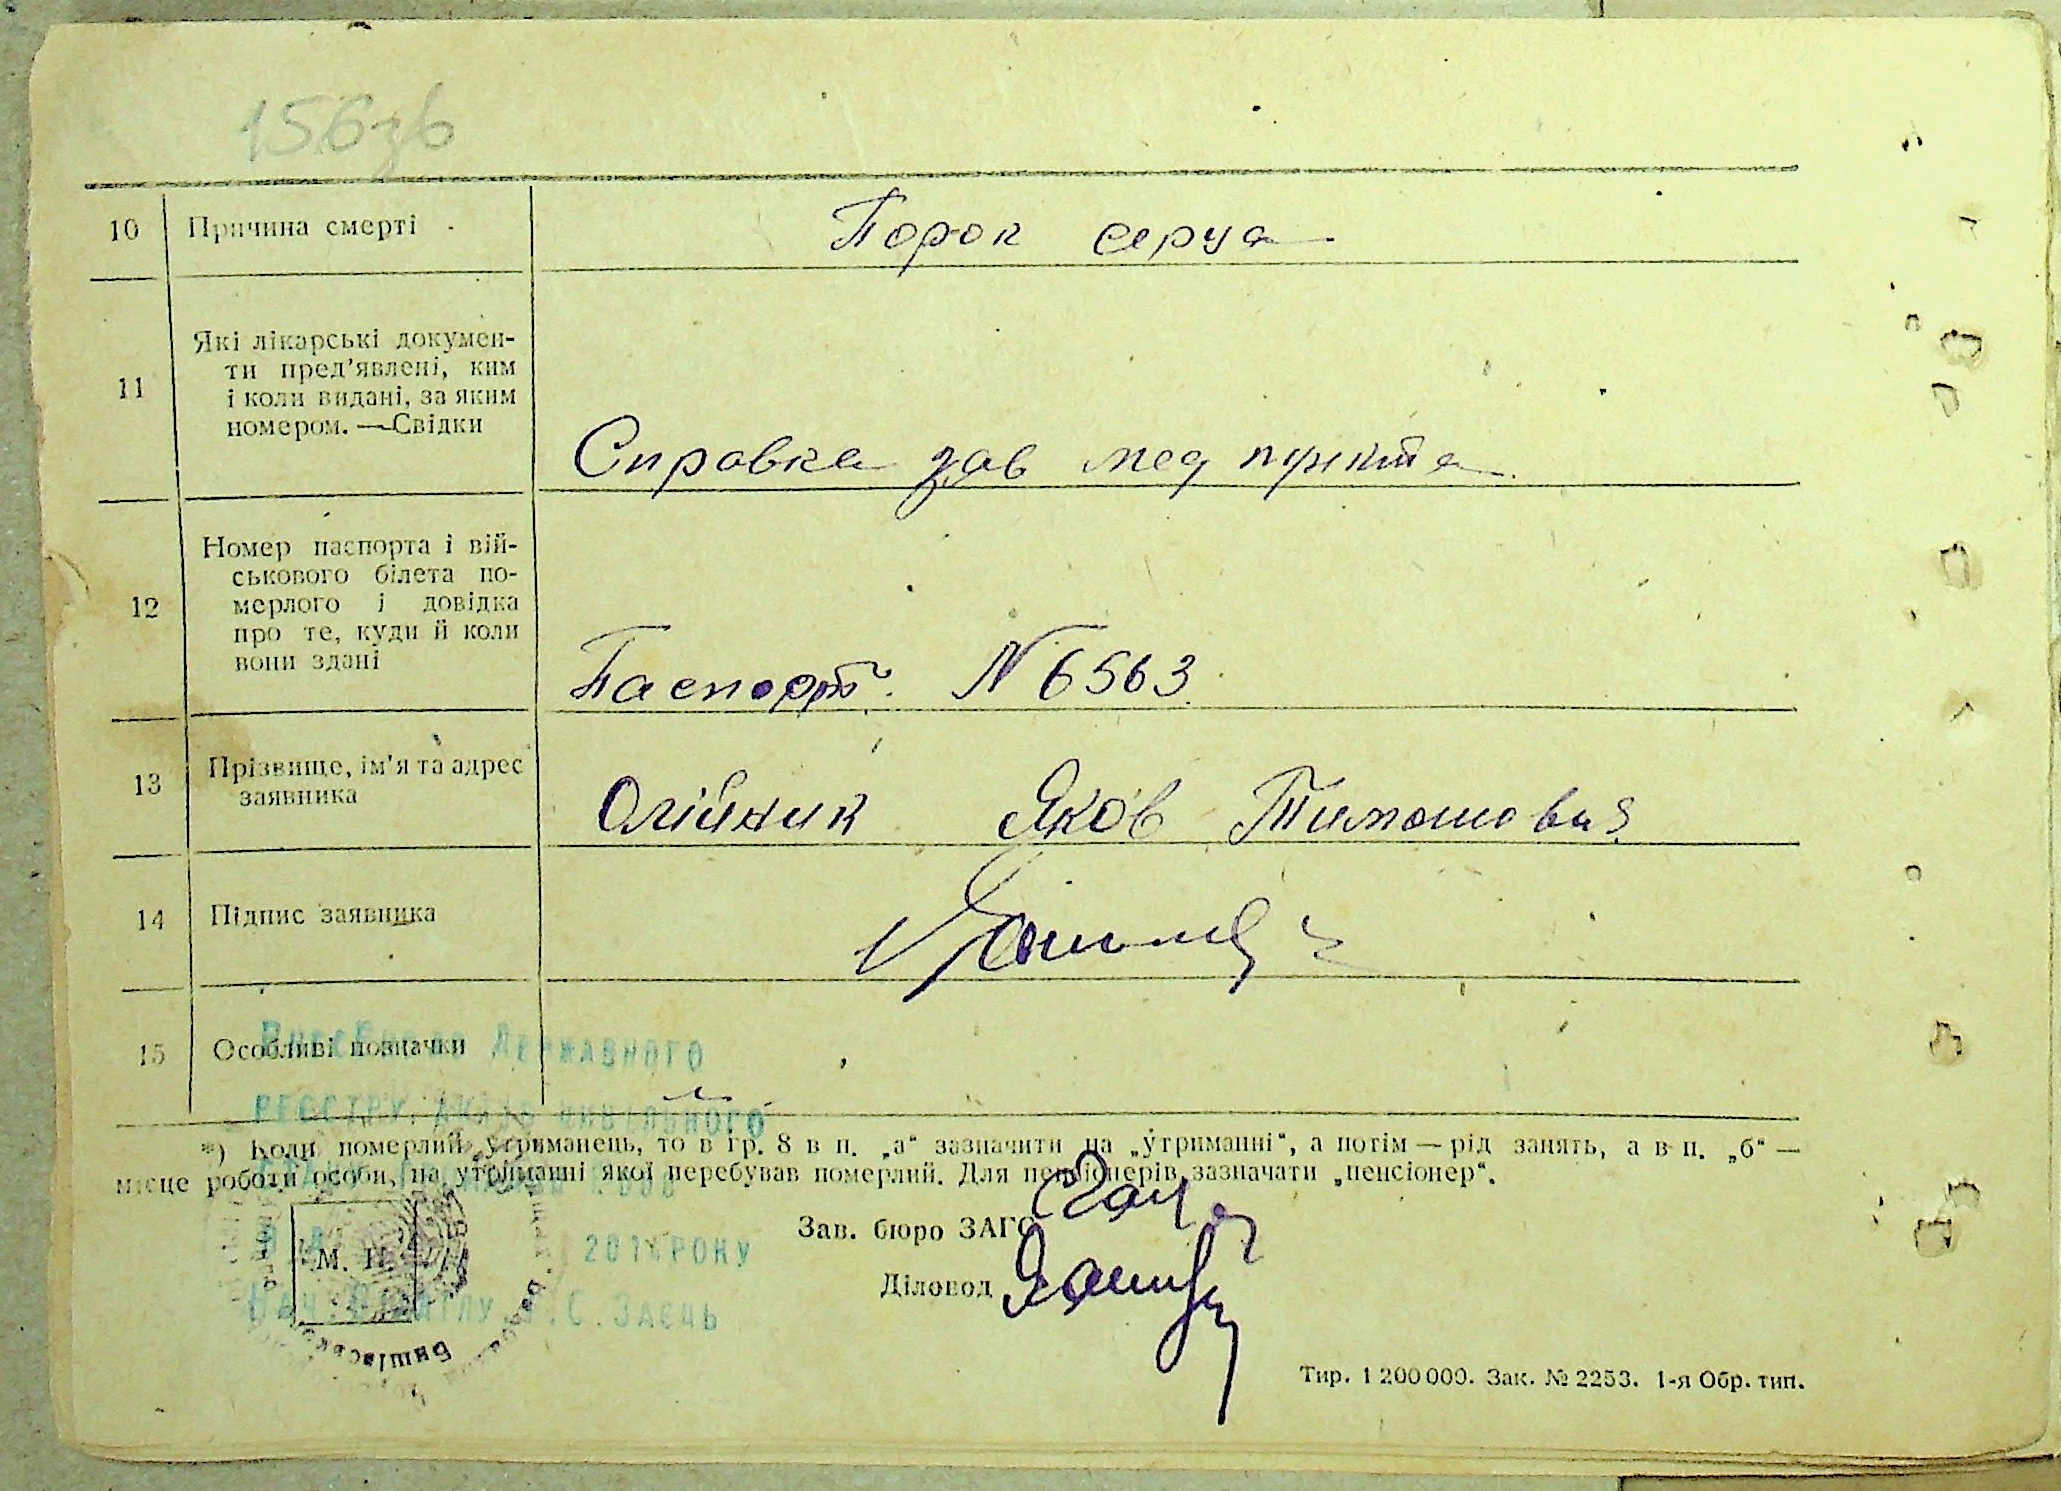 156зв
10 Причина смерті Порок серца
11 Які лікарські докумен-
ти пред'явлені, ким
і коли видані, за яким
номером. — Свідки
Справка зав мед пункта
12 Номер паспорта і вій-
ськового білета по-
мерлого і довідка
про те, куди й коли
вони здані
Паспорт. N 6563
13 Прізвище, ім'я та адрес
заявника
Олійник Яков Тимошович
14 Підпис заявника
15 Особливі позначки
Державного
*) Коли померлий утриманець, то в гр. 8 в п. „а“ зазначити на „утриманні“, а потім — рід занять, а в п. „б“ —
місце роботи особи, на утриманні якої перебував померлий. Для пенсіонерів зазначати „пенсіонер“.
Зав. бюро ЗАГС
М. П.
РОКУ
Діловод
Заєць
Тир. 1 200 000. Зак. № 2253. 1-я Обр. тип.